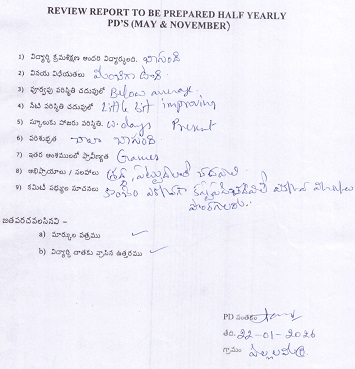 REVIEW REPORT TO BE PREPARED HALF YEARLY
PD'S (MAY & NOVEMBER)
1) విద్యార్థి క్రమశిక్షణ అందరి విద్యార్థులది. బాగుంది
2) వినయ విధేయతలు మంచిగా ఉంది
3) పూర్వపు పరిస్థితి చదువులో Below average.
4) నేటి పరిస్థితి చదువులో Little bit improving
5) స్కూలుకు హాజరు పరిస్థితి. w.days Present
6) పరిశుభ్రత చాలా బాగుంది
7) ఇతర అంశములలో ప్రావీణ్యత Games
8) అభిప్రాయాలు / సలహాలు శ్రద్ధ, పట్టుదలతో చదవాలి
9) కమిటీ సభ్యుల సూచనలు
జతపరచవలసినవి –
a) మార్కుల పత్రము ✓
b) విద్యార్థి దాతకు వ్రాసిన ఉత్తరము ✓
PD సంతకం
తేది. 22-01-2026
గ్రామం